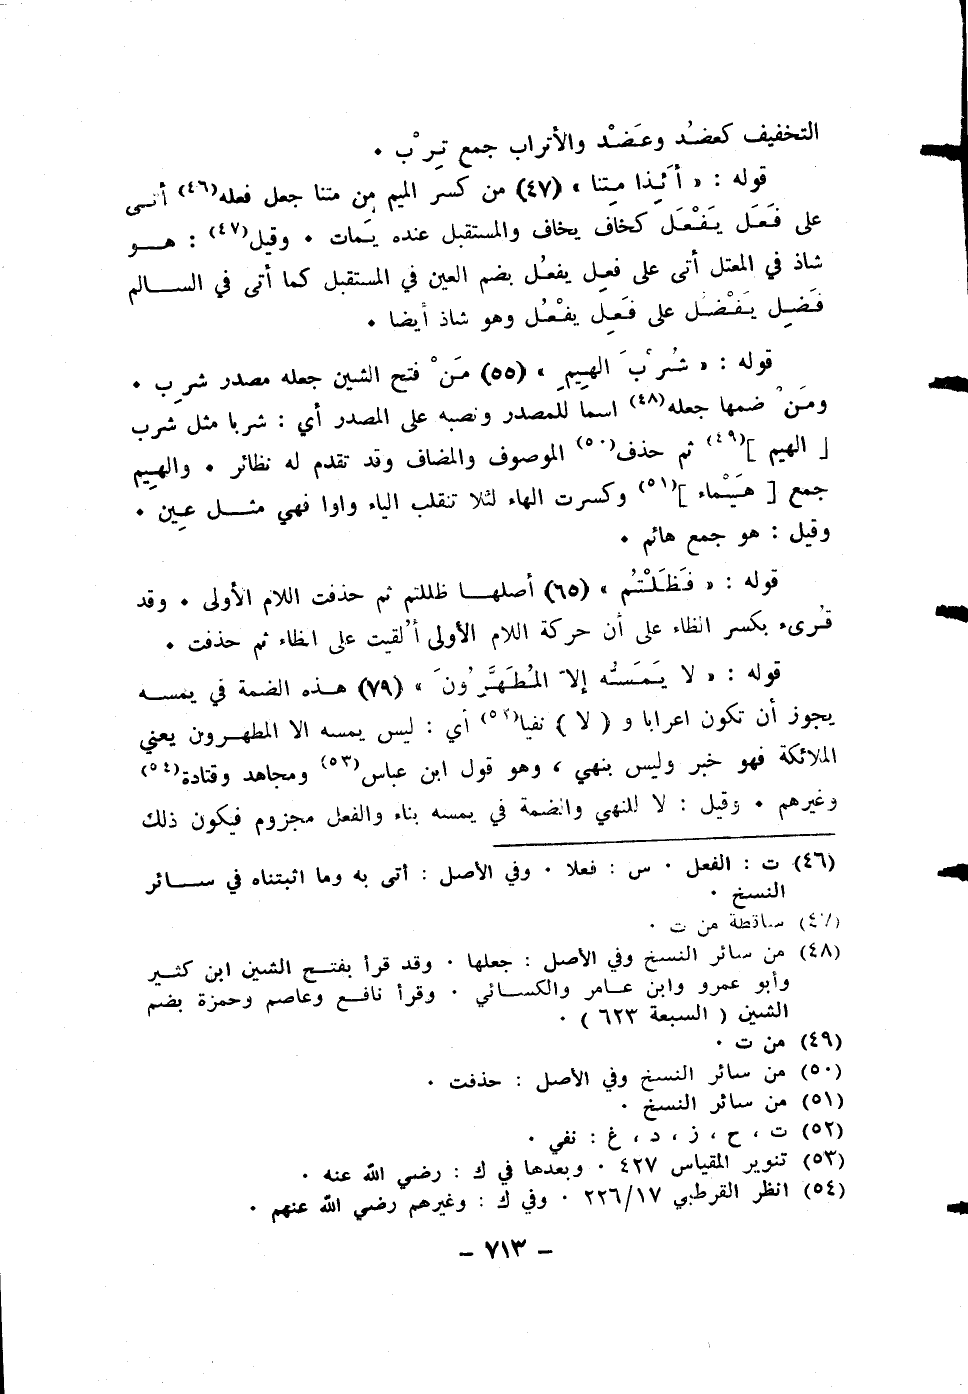 التخفيف كعضُد وعَضْد والأتراب جمع تِرْب ٠
قوله : « أئِذا مِتنا » (٤٧) من كسر الميم مِن متنا جعل فعله(٤٦) أتـى
على فَعَل يَفْعَل كخاف يخاف والمستقبل عنده يَمات ٠ وقيل(٤٧) : هـــو
شاذ في المعتل أتى على فعِل يفعُل بضم العين في المستقبل كما أتى في الســـالم
فَضِل يَفْضُل على فَعِل يفْعُل وهو شاذ أيضا ٠
قوله : « شُرْبَ الهِيمِ » (٥٥) مَنْ فتح الشين جعله مصدر شرِب ٠
ومَنْ ضمها جعله(٤٨) اسما للمصدر ونصبه على المصدر أي : شربا مثل شرب
[ الهيم ](٤٩) ثم حذف(٥٠) الموصوف والمضاف وقد تقدم له نظائر ٠ والهِيم
جمع [ هَيْماء ](٥١) وكسرت الهاء لئلا تنقلب الياء واوا فهي مثـــل عِين ٠
وقيل : هو جمع هائم ٠
قوله : « فَظَلَتْتُم » (٦٥) أصلهـــا ظللتم ثم حذفت اللام الأولى ٠ وقد
قُرىء بكسر الظاء على أن حركة اللام الأولى أُلقيت على الظاء ثم حذفت ٠
قوله : « لا يَمَسُّه إلاّ المُطَهَّرُونَ » (٧٩) هـــذه الضمة في يمســـه
يجوز أن تكون اعرابا و ( لا ) نفيا(٥٢) أي : ليس يمسه الا المطهـــرون يعني
الملائكة فهو خبر وليس بنهي ، وهو قول ابن عباس(٥٣) ومجاهد وقتادة(٥٤)
وغيرهم ٠ وقيل : لا للنهي والضمة في يمسه بناء والفعل مجزوم فيكون ذلك
(٤٦) ت : الفعل ٠ س : فعلا ٠ وفي الأصل : أتى به وما اثبتناه في ســـائر
النسخ ٠
(٤٧) ساقطة من ت ٠
(٤٨) من سائر النسخ وفي الأصل : جعلها ٠ وقد قرأ بفتـــح الشين ابن كثـــير
وأبو عمرو وابن عـــامر والكســـائي ٠ وقرأ نافـــع وعاصم وحمزة بضم
الشين ( السبعة ٦٢٣ ) ٠
(٤٩) من ت ٠
(٥٠) من سائر النسخ وفي الأصل : حذفت ٠
(٥١) من سائر النسخ ٠
(٥٢) ت ، ح ، ز ، د ، غ : نفي ٠
(٥٣) تنوير المقياس ٤٢٧ ٠ وبعدها في ك : رضي الله عنه ٠
(٥٤) انظر القرطبي ٢٢٦/١٧ ٠ وفي ك : وغيرهم رضي الله عنهم ٠
– ٧١٣ –